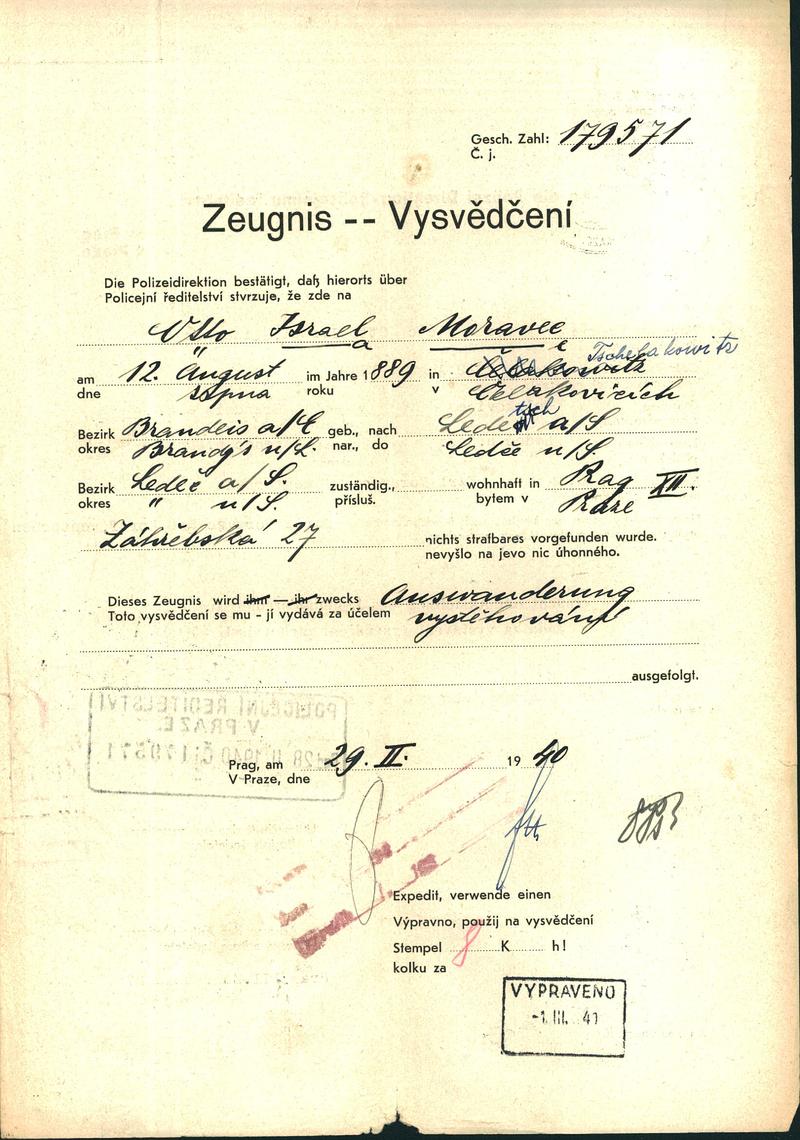 Gesch. Zahl: 179571
Č. j.
Zeugnis -- Vysvědčení
Die Polizeidirektion bestätigt, daß hierorts über
Policejní ředitelství stvrzuje, že zde na
Otto Israel Moravec
a e
Tschelakowitz
am 12. August im Jahre 1889 in
dne srpna roku v Čelakovicích
Bezirk Brandeis a/E geb., nach Ledetsch a/S
okres Brandýs n/L. nar., do Ledče n/S.
Bezirk Ledeč a/S. zuständig., wohnhaft in Prag XII.
okres " n/S. přísluš. bytem v Praze
Záhřebská 27 nichts strafbares vorgefunden wurde.
nevyšlo na jevo nic úhonného.
Dieses Zeugnis wird ihm — ihr zwecks Auswanderung
Toto vysvědčení se mu - jí vydává za účelem vystěhování
ausgefolgt.
POLICEJNÍ ŘEDITELSTVÍ
V PRAZE
28 II 1940 Č.j 179571
Prag, am 29. II. 19 40
V Praze, dne
Expedit, verwende einen
Výpravno, použij na vysvědčení
Stempel 8 K h!
kolku za
VYPRAVENO
-1. III. 40